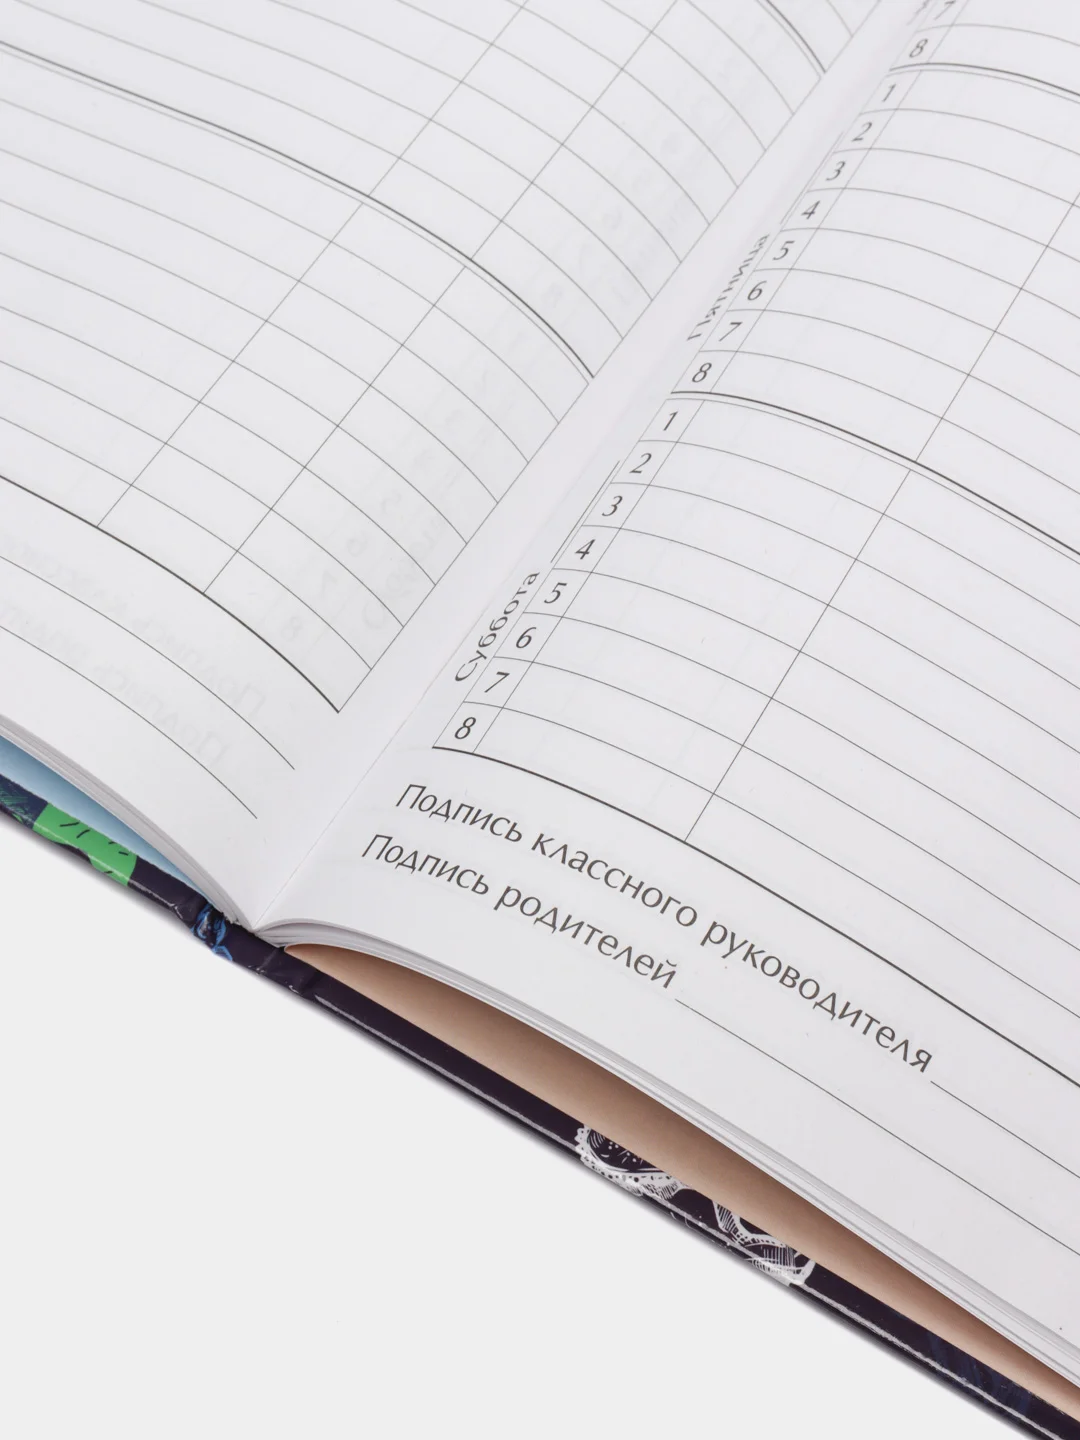 7
8
Пятница
1
2
3
4
5
6
7
8
Суббота
1
2
3
4
5
6
7
8
Подпись классного руководителя
Подпись родителей